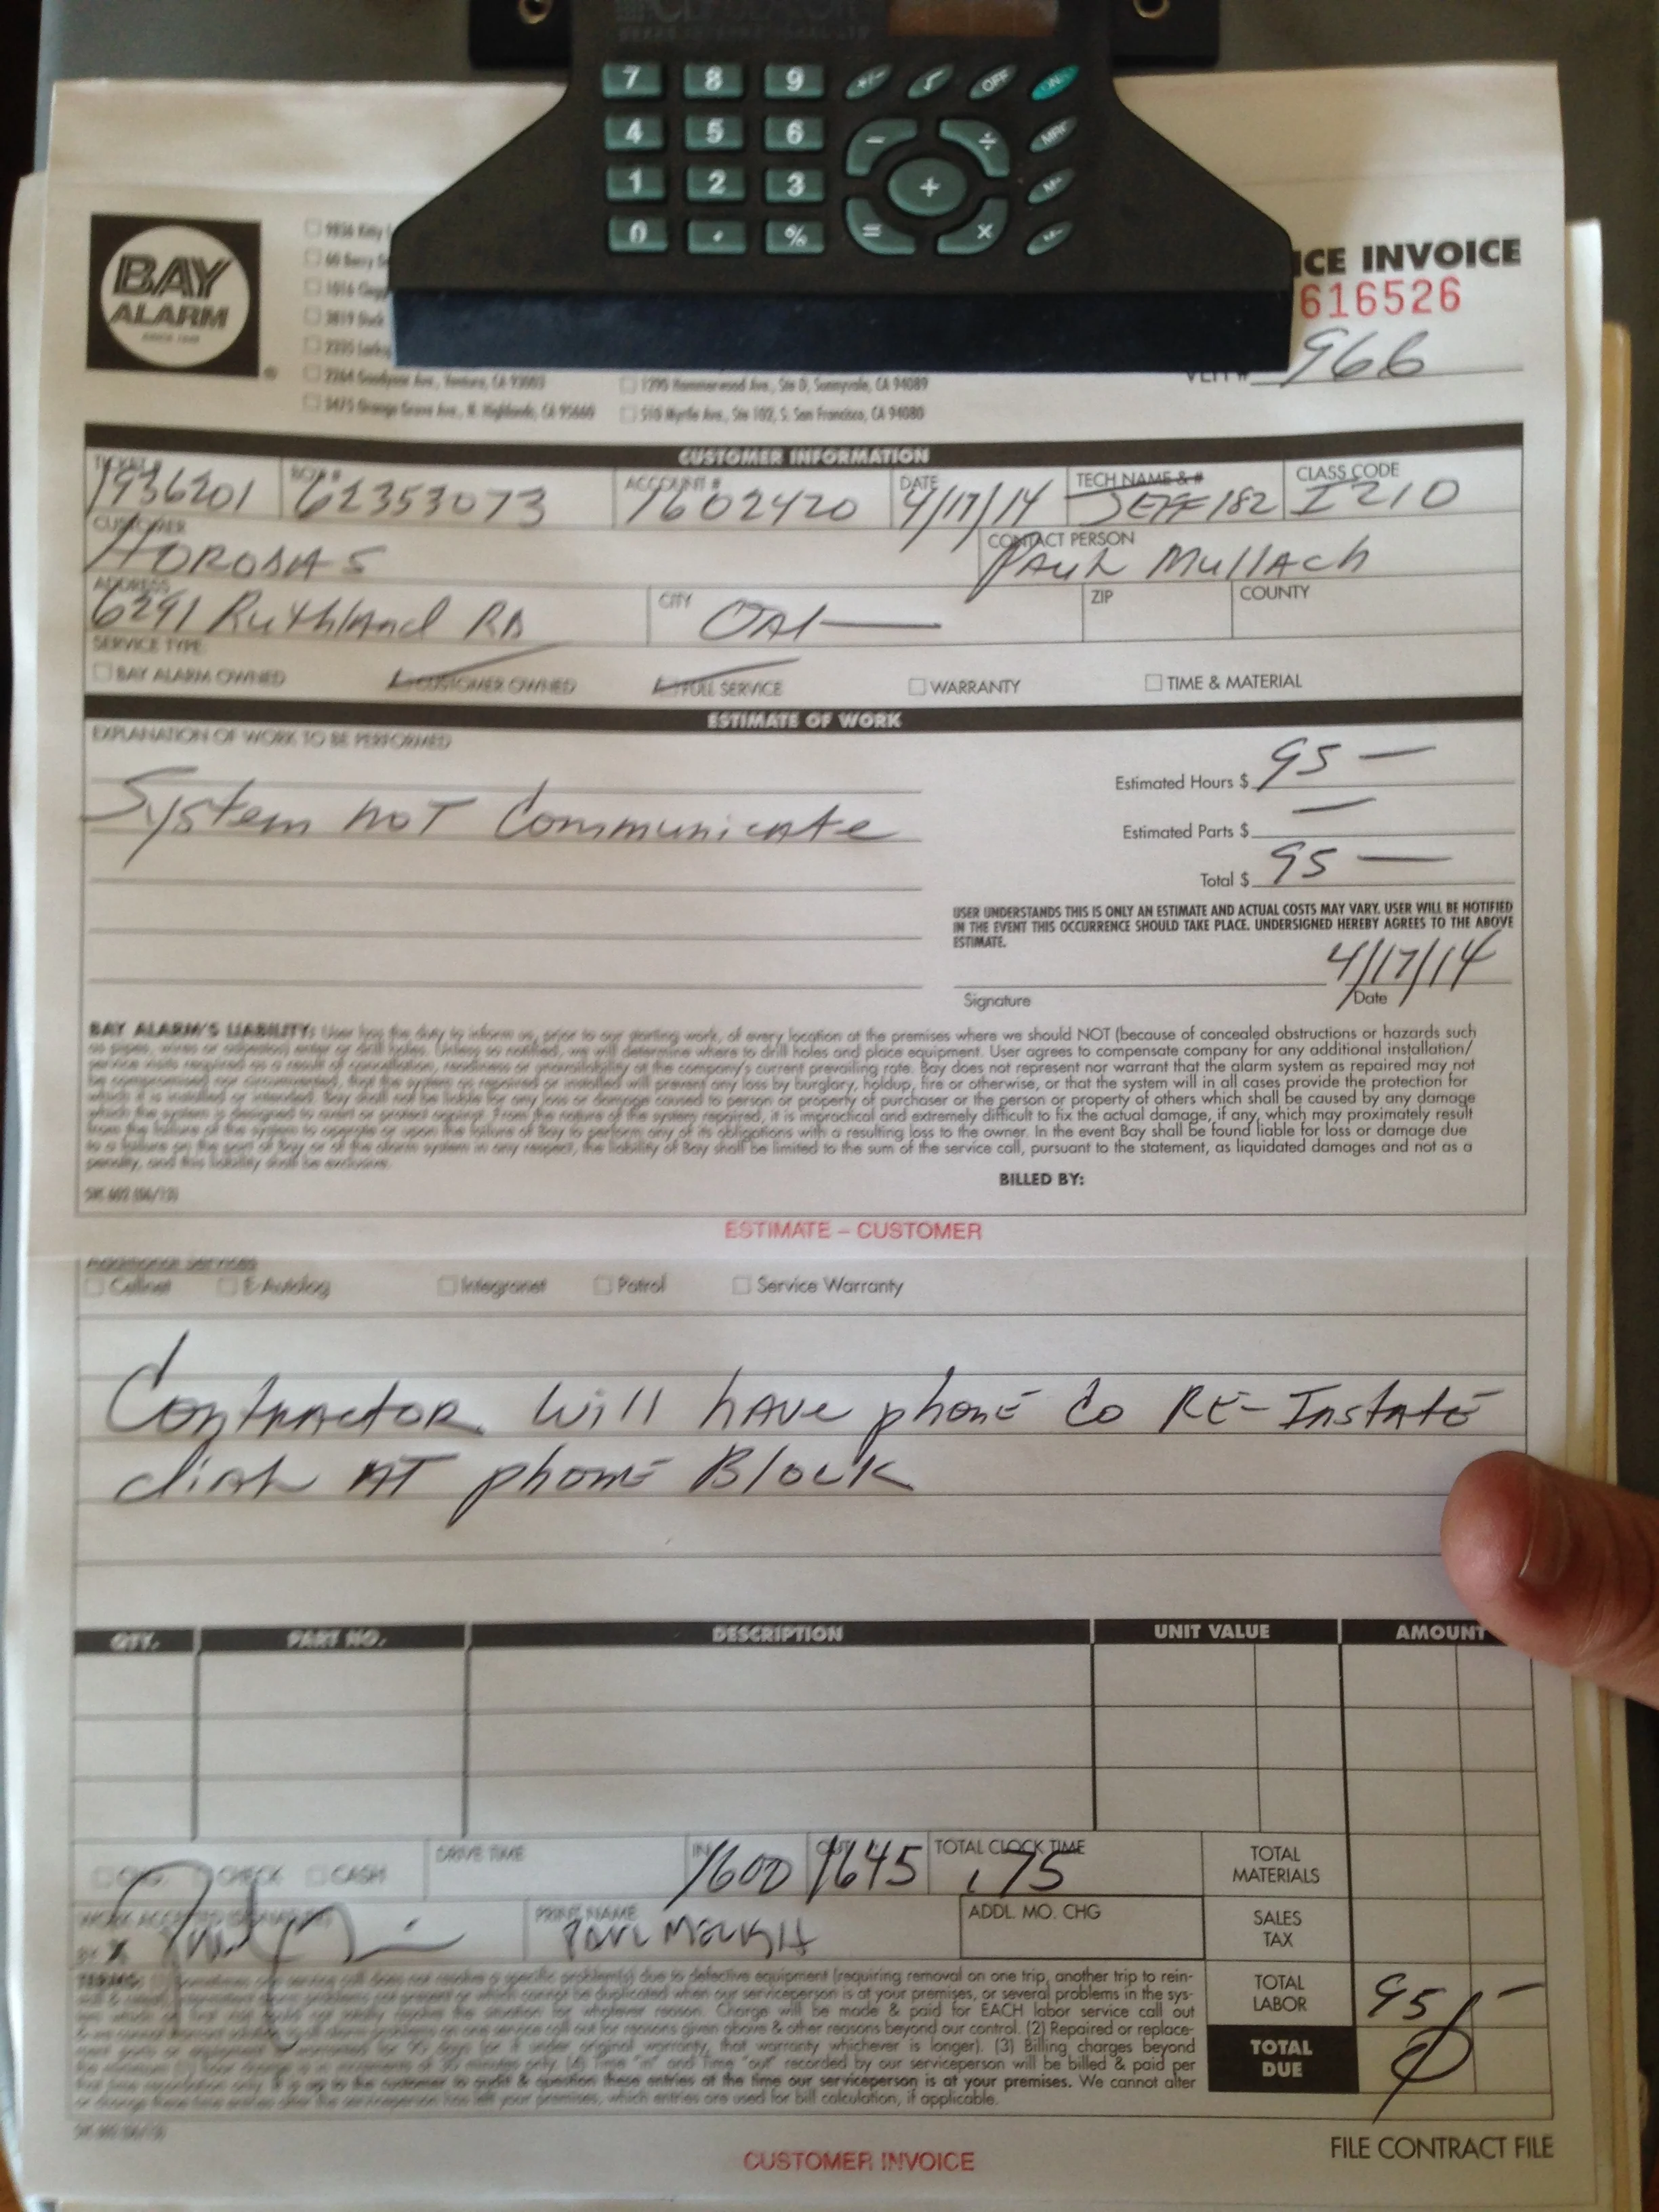 7 8 9 +/- √ OFF ON
4 5 6 - ÷ MRC
1 2 3 + M+
0 . % = × M-
BAY
ALARM
SINCE 1946
ICE INVOICE
616526
966
2264 Goodyear Ave., Ventura, CA 93003
1290 Hammerwood Ave., Ste D, Sunnyvale, CA 94089
5475 Orange Grove Ave., N. Highlands, CA 95660
510 Myrtle Ave., Ste 102, S. San Francisco, CA 94080
CUSTOMER INFORMATION
TICKET # ACCOUNT # DATE TECH NAME & # CLASS CODE
1936201 62353073 1602420 4/17/14 JEFF 182 I210
CUSTOMER CONTACT PERSON
PAUL MullAch
ADDRESS CITY ZIP COUNTY
6291 RuthlAnd RD OAk
SERVICE TYPE
BAY ALARM OWNED CUSTOMER OWNED FULL SERVICE WARRANTY TIME & MATERIAL
ESTIMATE OF WORK
EXPLANATION OF WORK TO BE PERFORMED
System not Communicate
Estimated Hours $ 95 —
Estimated Parts $ —
Total $ 95 —
USER UNDERSTANDS THIS IS ONLY AN ESTIMATE AND ACTUAL COSTS MAY VARY. USER WILL BE NOTIFIED
IN THE EVENT THIS OCCURRENCE SHOULD TAKE PLACE. UNDERSIGNED HEREBY AGREES TO THE ABOVE
ESTIMATE.
4/17/14
Signature Date
BAY ALARM'S LIABILITY: User has the duty to inform us, prior to our starting work, of every location at the premises where we should NOT (because of concealed obstructions or hazards such
as pipes, wires or asbestos) enter or drill holes. Unless so notified, we will determine where to drill holes and place equipment. User agrees to compensate company for any additional installation/
service visits required as a result of cancellation, readiness or unavailability at the company's current prevailing rate. Bay does not represent nor warrant that the alarm system as repaired may not
be compromised nor circumvented, that the system as repaired or installed will prevent any loss by burglary, holdup, fire or otherwise, or that the system will in all cases provide the protection for
which it is installed or intended. Bay shall not be liable for any loss or damage caused to person or property of purchaser or the person or property of others which shall be caused by any damage
which the system is designed to avert or protect against. From the nature of the system repaired, it is impractical and extremely difficult to fix the actual damage, if any, which may proximately result
from the failure of the system to operate or upon the failure of Bay to perform any of its obligations with a resulting loss to the owner. In the event Bay shall be found liable for loss or damage due
to a failure on the part of Bay or of the alarm system in any respect, the liability of Bay shall be limited to the sum of the service call, pursuant to the statement, as liquidated damages and not as a
penalty, and this liability shall be exclusive.
BILLED BY:
ESTIMATE – CUSTOMER
Additional Services
Cellnet E-Autolog Integranet Patrol Service Warranty
Contractor will have phone Co Re-Instate
dial AT phone Block
QTY. PART NO. DESCRIPTION UNIT VALUE AMOUNT
CHG. CHECK CASH DRIVE TIME IN 1600 OUT 1645 TOTAL CLOCK TIME .75
TOTAL
MATERIALS
WORK ACCEPTED (SIGNATURE)
BY X
PRINT NAME
ADDL. MO. CHG
SALES
TAX
due to defective equipment (requiring removal on one trip, another trip to rein-
when our serviceperson is at your premises, or several problems in the sys-
Charge will be made & paid for EACH labor service call out
for reasons given above & other reasons beyond our control. (2) Repaired or replace-
original warranty, that warranty whichever is longer). (3) Billing charges beyond
(4) Time "in" and Time "out" recorded by our serviceperson will be billed & paid per
these entries at the time our serviceperson is at your premises. We cannot alter
or change these time entries after the serviceperson has left your premises, which entries are used for bill calculation, if applicable.
TOTAL
LABOR 95 —
TOTAL
DUE Ø
FILE CONTRACT FILE
CUSTOMER INVOICE